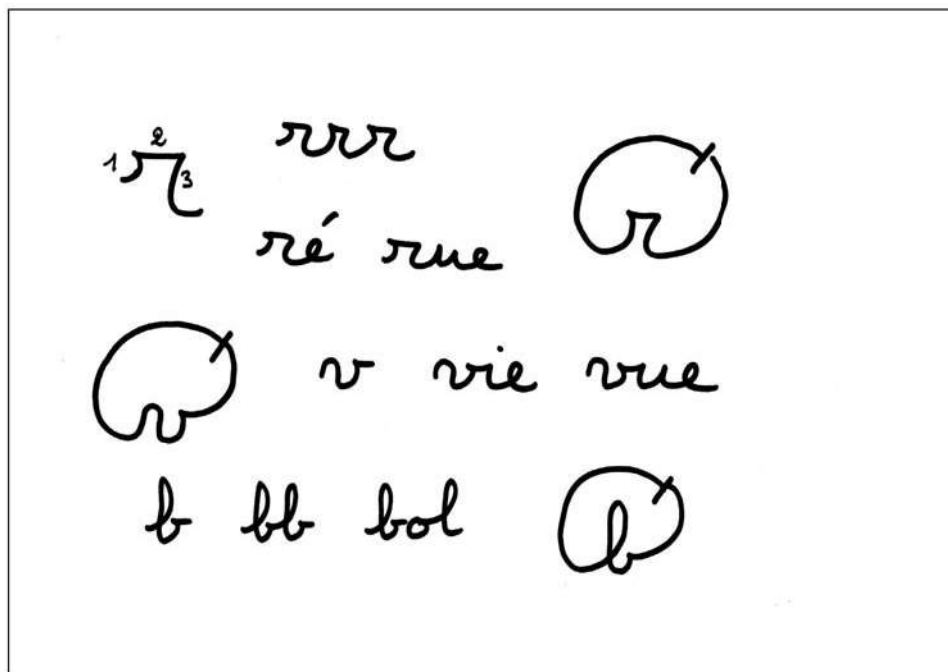 1 2 3 r rrr
r
ré rue
v v vie vue
b bb bol b